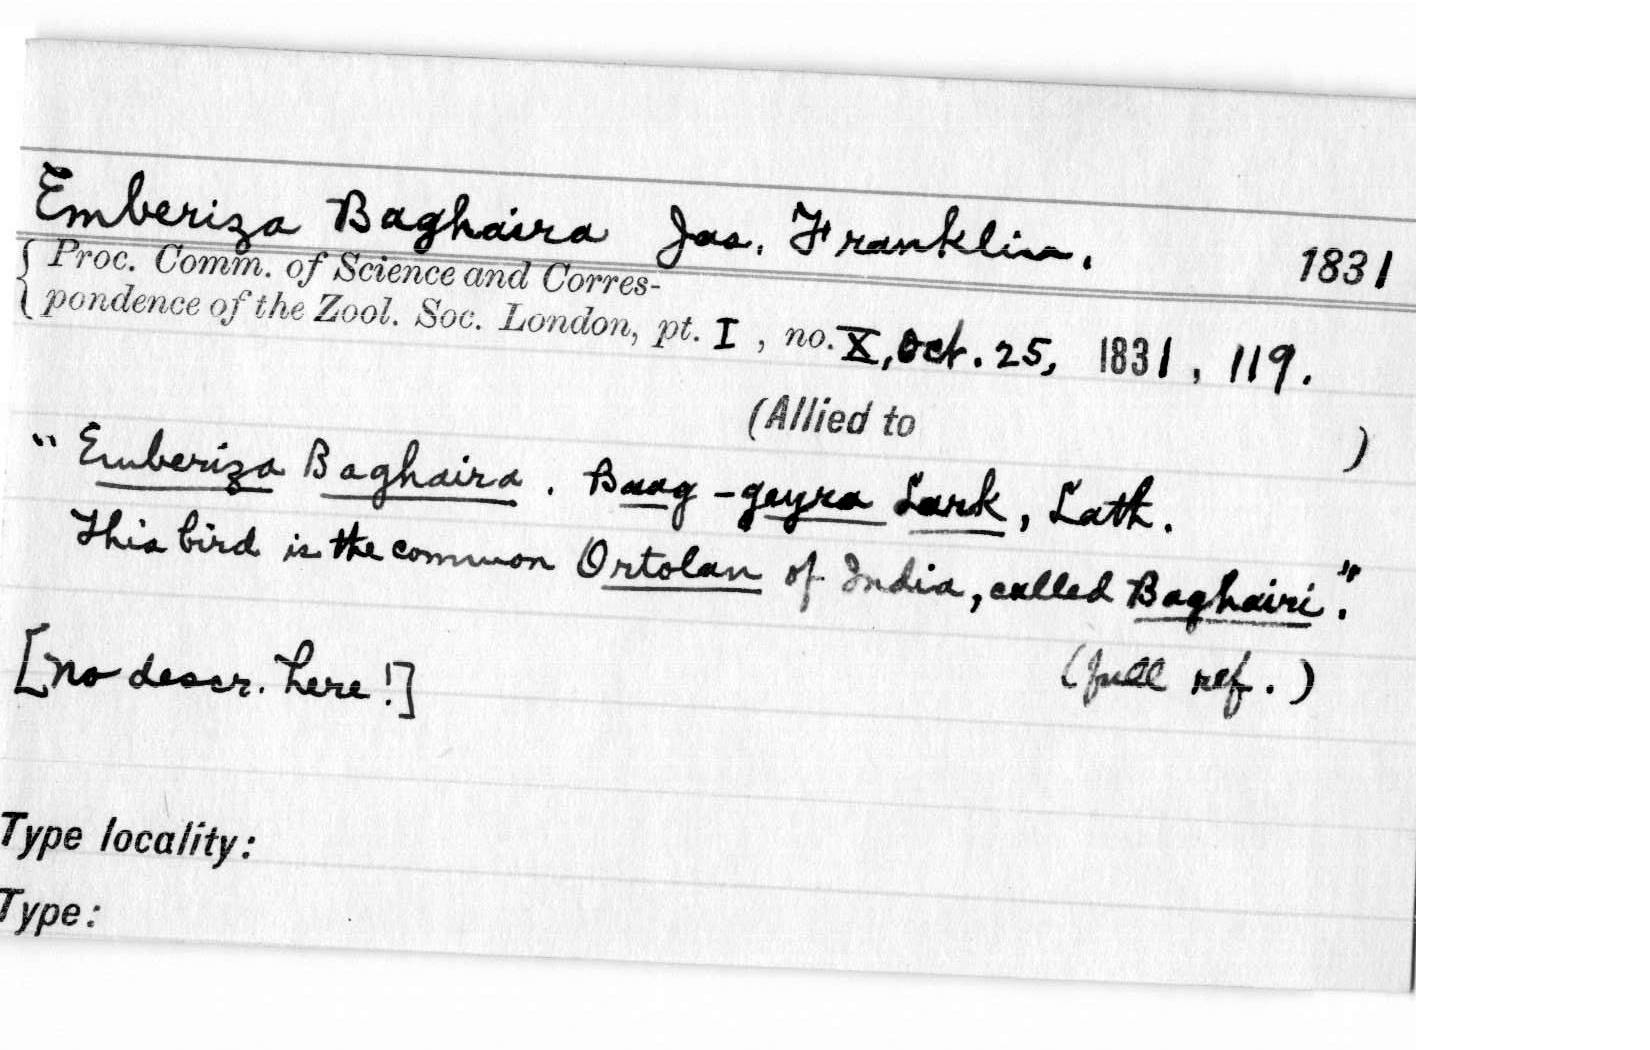 Emberiza Baghaira Jas. Franklin. 1831
Proc. Comm. of Science and Corres-
pondence of the Zool. Soc. London, pt. I, no. X, Oct. 25, 1831, 119.
(Allied to )
"Emberiza Baghaira. Baag-geyra Lark, Lath.
This bird is the common Ortolan of India, called Baghairi."
[no descr. here!] (full ref.)
Type locality:
Type: